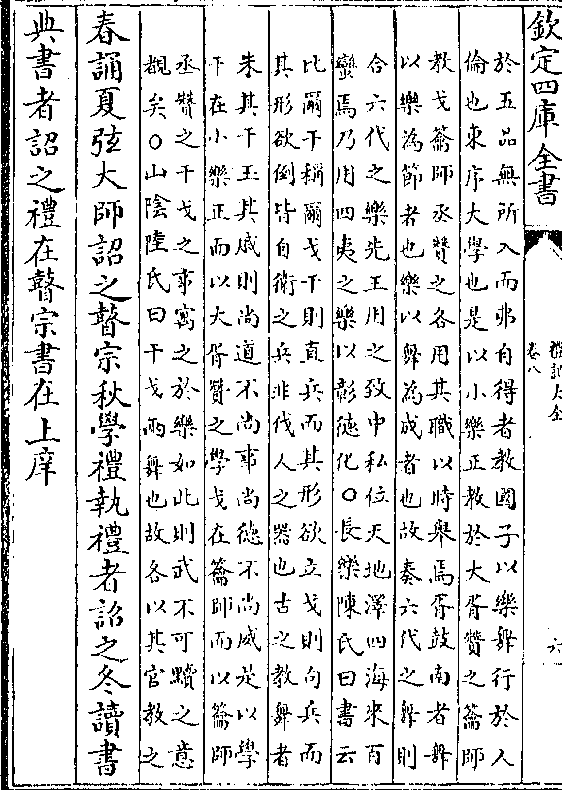 欽定四庫全書
禮記大全
卷八
六
於五品無所入而弗自得者教國子以樂舞行於人
倫也東序大學也是以小樂正教於大胥贊之籥師
教戈籥師丞贊之各用其職以時舉焉胥鼓南者舞
以樂為節者也樂以舞為成者也故奏六代之舞則
合六代之樂先王用之致中和位天地澤四海來百
蠻焉乃用四夷之樂以彰德化○長樂陳氏曰書云
比爾干稱爾戈干則直兵而其形欲立戈則句兵而
其形欲倒皆自衛之兵非伐人之器也古之教舞者
朱其干玉其戚則尚道不尚事尚德不尚威是以學
干在小樂正而以大胥贊之學戈在籥師而以籥師
丞贊之干戈之事寓之於樂如此則武不可黷之意
覩矣○山陰陸氏曰干戈兩舞也故各以其官教之
春誦夏弦大師詔之瞽宗秋學禮執禮者詔之冬讀書
典書者詔之禮在瞽宗書在上庠